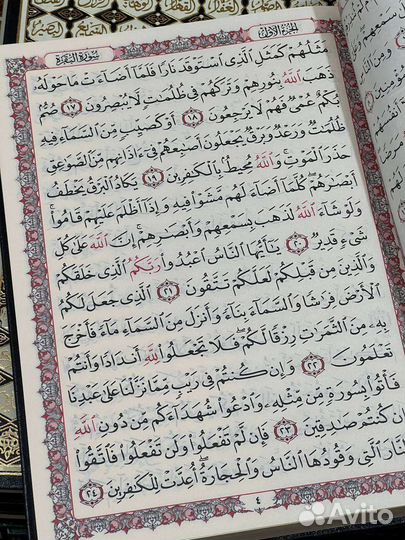 الجزء الأول
سورة البقرة
مَثَلُهُمْ كَمَثَلِ ٱلَّذِى ٱسْتَوْقَدَ نَارًا فَلَمَّآ أَضَآءَتْ مَا حَوْلَهُۥ
ذَهَبَ ٱللَّهُ بِنُورِهِمْ وَتَرَكَهُمْ فِى ظُلُمَٰتٍ لَّا يُبْصِرُونَ ١٧ صُمٌّۢ
بُكْمٌ عُمْىٌ فَهُمْ لَا يَرْجِعُونَ ١٨ أَوْ كَصَيِّبٍ مِّنَ ٱلسَّمَآءِ فِيهِ
ظُلُمَٰتٌ وَرَعْدٌ وَبَرْقٌ يَجْعَلُونَ أَصَٰبِعَهُمْ فِىٓ ءَاذَانِهِم مِّنَ ٱلصَّوَٰعِقِ
حَذَرَ ٱلْمَوْتِ ۚ وَٱللَّهُ مُحِيطٌۢ بِٱلْكَٰفِرِينَ ١٩ يَكَادُ ٱلْبَرْقُ يَخْطَفُ
أَبْصَٰرَهُمْ ۖ كُلَّمَآ أَضَآءَ لَهُم مَّشَوْا۟ فِيهِ وَإِذَآ أَظْلَمَ عَلَيْهِمْ قَامُوا۟ ۚ
وَلَوْ شَآءَ ٱللَّهُ لَذَهَبَ بِسَمْعِهِمْ وَأَبْصَٰرِهِمْ ۚ إِنَّ ٱللَّهَ عَلَىٰ كُلِّ
شَىْءٍ قَدِيرٌ ٢٠ يَٰٓأَيُّهَا ٱلنَّاسُ ٱعْبُدُوا۟ رَبَّكُمُ ٱلَّذِى خَلَقَكُمْ
وَٱلَّذِينَ مِن قَبْلِكُمْ لَعَلَّكُمْ تَتَّقُونَ ٢١ ٱلَّذِى جَعَلَ لَكُمُ
ٱلْأَرْضَ فِرَٰشًا وَٱلسَّمَآءَ بِنَآءً وَأَنزَلَ مِنَ ٱلسَّمَآءِ مَآءً فَأَخْرَجَ
بِهِۦ مِنَ ٱلثَّمَرَٰتِ رِزْقًا لَّكُمْ ۖ فَلَا تَجْعَلُوا۟ لِلَّهِ أَندَادًا وَأَنتُمْ
تَعْلَمُونَ ٢٢ وَإِن كُنتُمْ فِى رَيْبٍ مِّمَّا نَزَّلْنَا عَلَىٰ عَبْدِنَا
فَأْتُوا۟ بِسُورَةٍ مِّن مِّثْلِهِۦ وَٱدْعُوا۟ شُهَدَآءَكُم مِّن دُونِ ٱللَّهِ
إِن كُنتُمْ صَٰدِقِينَ ٢٣ فَإِن لَّمْ تَفْعَلُوا۟ وَلَن تَفْعَلُوا۟ فَٱتَّقُوا۟
ٱلنَّارَ ٱلَّتِى وَقُودُهَا ٱلنَّاسُ وَٱلْحِجَارَةُ ۖ أُعِدَّتْ لِلْكَٰفِرِينَ ٢٤
٤
Avito